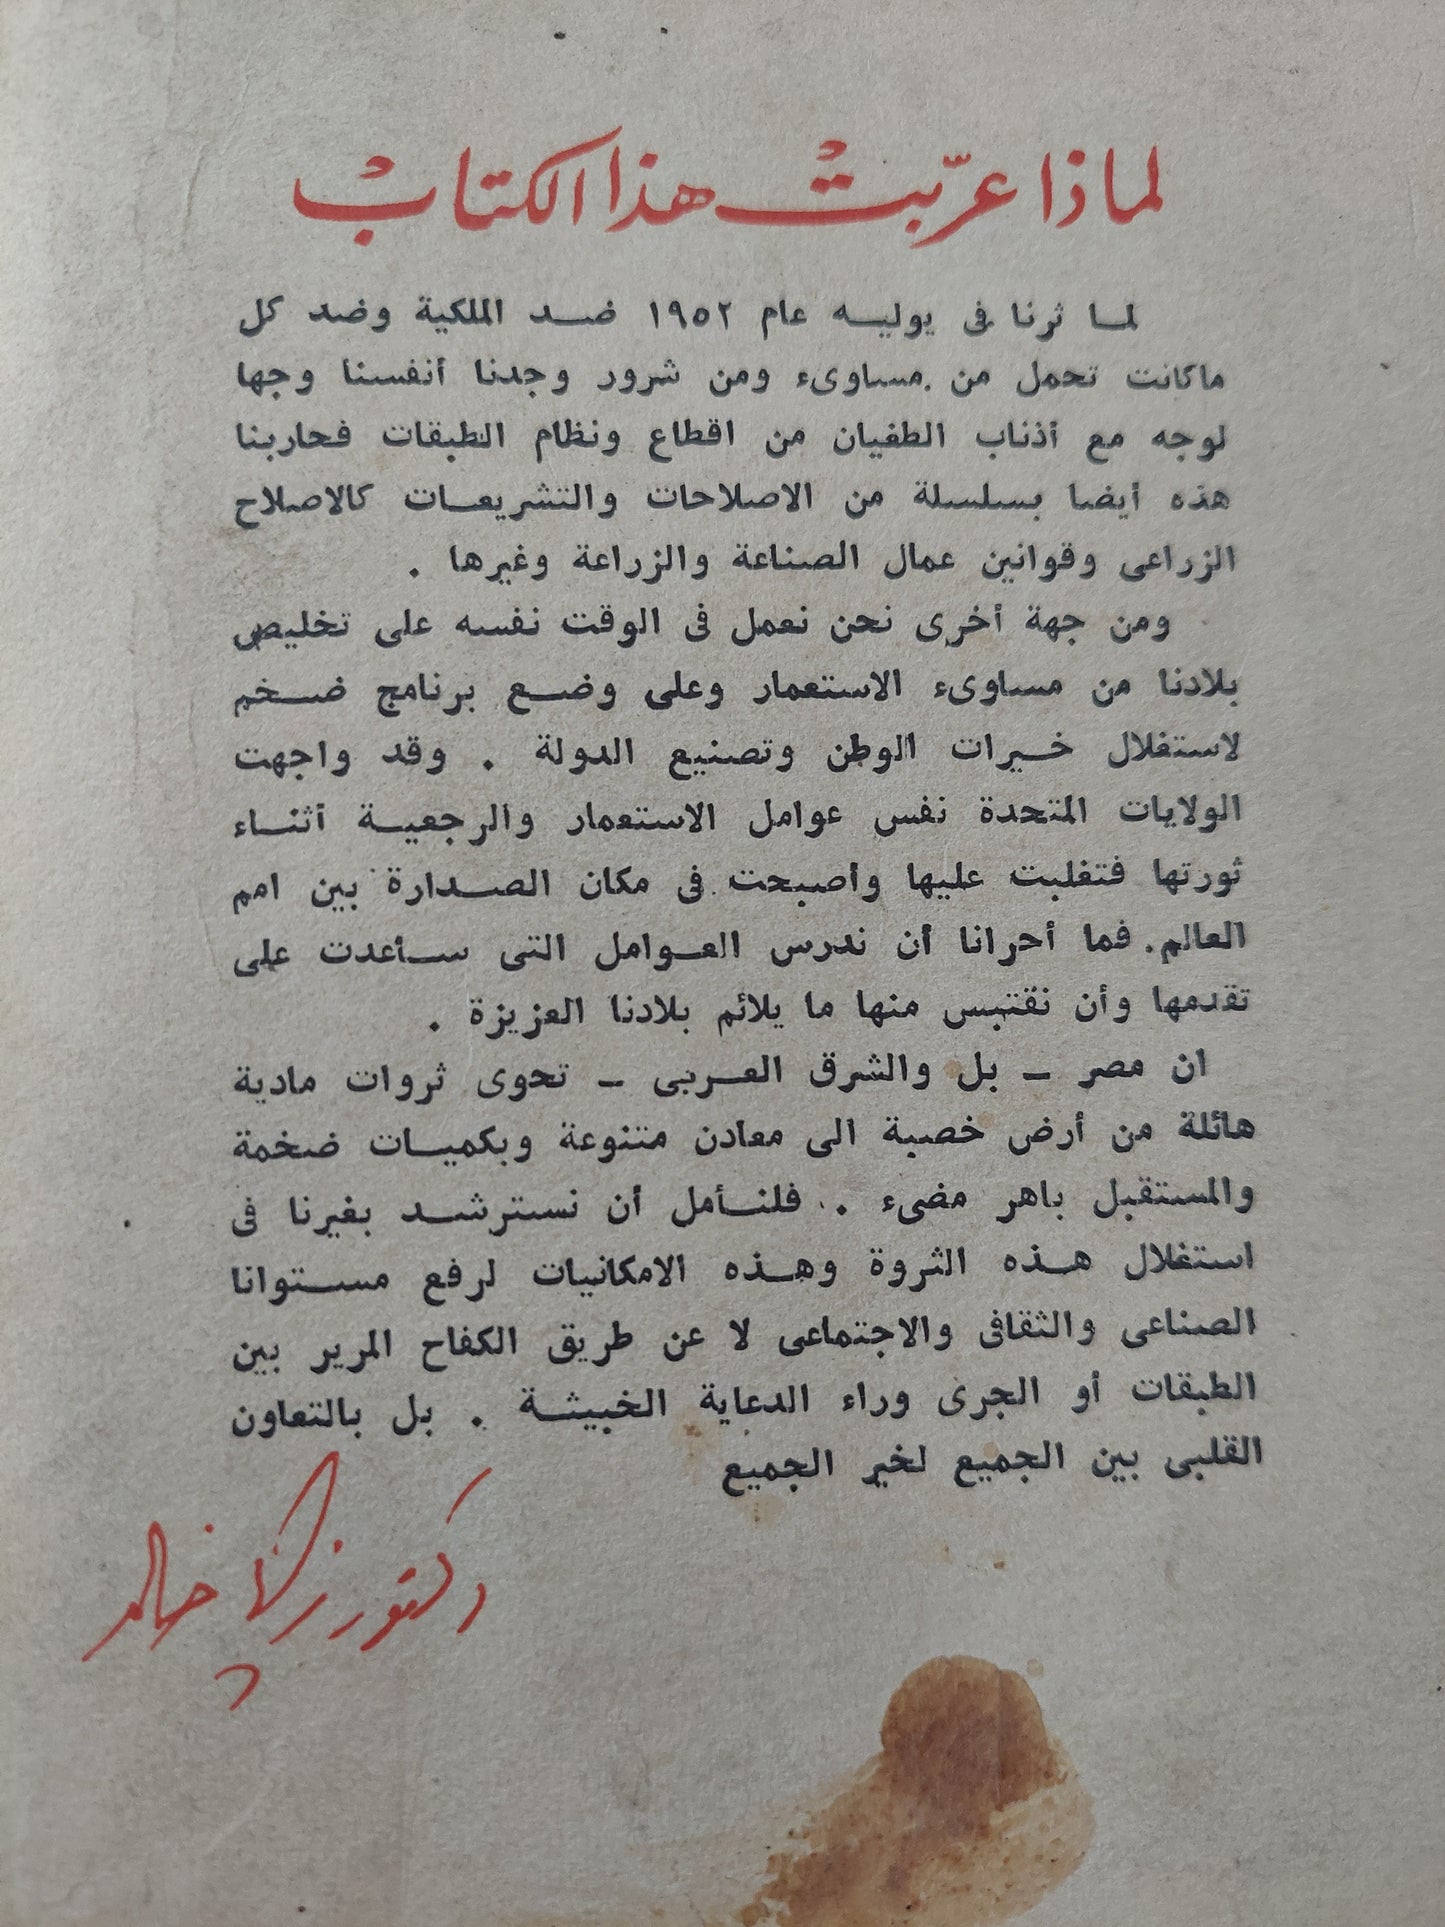 لماذا عرّبت هذا الكتاب
لما ثرنا فى يوليه عام ١٩٥٢ ضد الملكية وضد كل
ماكانت تحمل من مساوىء ومن شرور وجدنا أنفسنا وجها
لوجه مع أذناب الطغيان من اقطاع ونظام الطبقات فحاربنا
هذه أيضا بسلسلة من الاصلاحات والتشريعات كالاصلاح
الزراعى وقوانين عمال الصناعة والزراعة وغيرها .
ومن جهة أخرى نحن نعمل فى الوقت نفسه على تخليص
بلادنا من مساوىء الاستعمار وعلى وضع برنامج ضخم
لاستغلال خيرات الوطن وتصنيع الدولة . وقد واجهت
الولايات المتحدة نفس عوامل الاستعمار والرجعية أثناء
ثورتها فتغلبت عليها وأصبحت فى مكان الصدارة بين امم
العالم. فما أحرانا أن ندرس العوامل التى ساعدت على
تقدمها وأن نقتبس منها ما يلائم بلادنا العزيزة .
ان مصر – بل والشرق العربى – تحوى ثروات مادية
هائلة من أرض خصبة الى معادن متنوعة وبكميات ضخمة
والمستقبل باهر مضىء . فلنأمل أن نسترشد بغيرنا فى
استغلال هذه الثروة وهذه الامكانيات لرفع مستوانا
الصناعى والثقافى والاجتماعى لا عن طريق الكفاح المرير بين
الطبقات أو الجرى وراء الدعاية الخبيثة . بل بالتعاون
القلبى بين الجميع لخير الجميع
دكتور زكى خالد